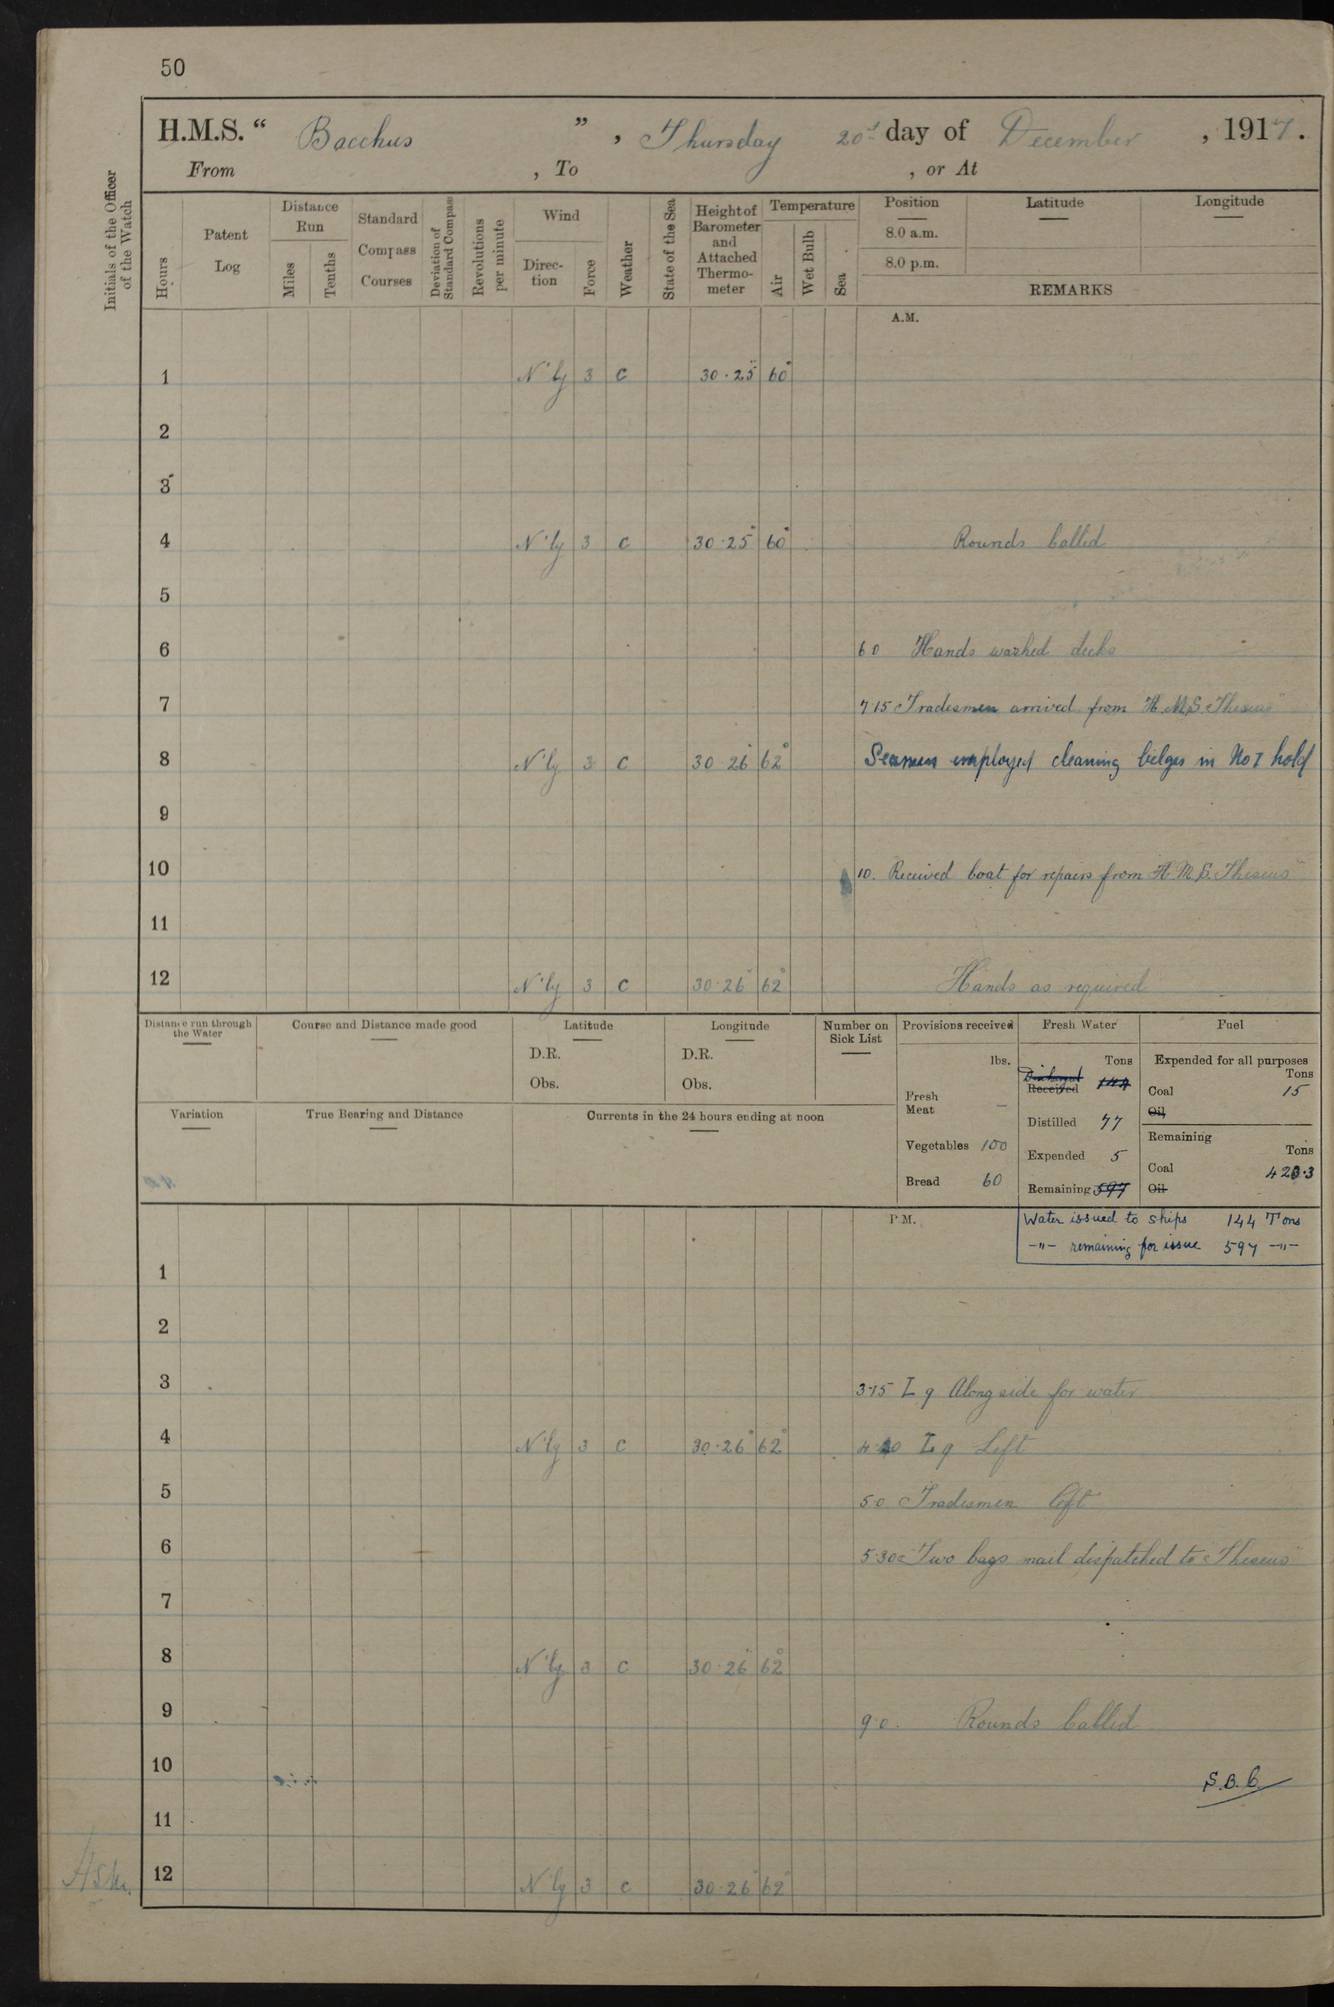 50
H.M.S. “ Bacchus ” , Thursday 20th day of December , 1917.
From , To , or At
Initials of the Officer of the Watch
Hours
Patent Log
Distance Run
Miles
Tenths
Standard Compass Courses
Deviation of Standard Compass
Revolutions per minute
Wind
Direc-tion
Force
Weather
State of the Sea
Height of Barometer and Attached Thermo-meter
Temperature
Air
Wet Bulb
Sea
Position Latitude Longitude
8.0 a.m.
8.0 p.m.
REMARKS
A.M.
1 N'ly 3 c 30·25 60°
2
3
4 N'ly 3 c 30·25 60° Rounds Called
5
6 6 0 Hands washed decks
7 7·15 Tradesmen arrived from "H.M.S. Theseus"
8 N'ly 3 c 30 26 62° Seamen employed cleaning bilges in No I hold
9
10 10. Received boat for repairs from "H.M.S. Theseus"
11
12 N'ly 3 c 30·26 62° Hands as required
Distance run through the Water
Course and Distance made good
Latitude
D.R.
Obs.
Longitude
D.R.
Obs.
Number on Sick List
Variation
True Bearing and Distance
Currents in the 24 hours ending at noon
Provisions received
lbs.
Fresh Meat —
Vegetables 100
Bread 60
Fresh Water
Tons
Discharged
Received 144
Distilled 77
Expended 5
Remaining 597
Fuel
Expended for all purposes
Tons
Coal 15
Oil
Remaining
Tons
Coal 423·3
Oil
P.M.
Water issued to ships 144 Tons
-"- remaining for issue 597 -"-
1
2
3 3·15 L 9 Alongside for water
4 N'ly 3 c 30·26 62° 4·40 L 9 Left
5 5 0 Tradesmen left
6 5·30 Two bags mail dispatched to "Theseus"
7
8 N'ly 3 c 30·26 62°
9 9·0. Rounds Called
10 S.B.C.
11
12 N'ly 3 c 30·26 62°